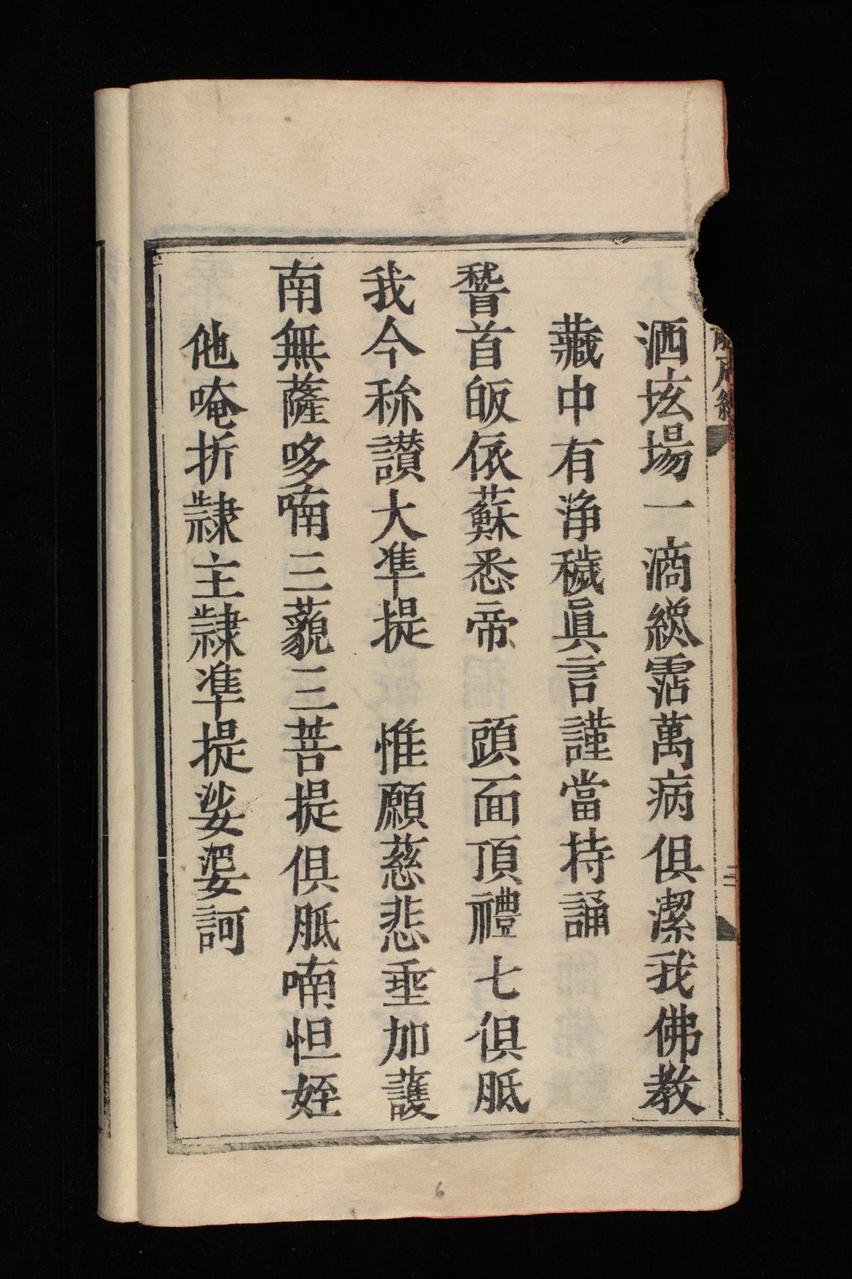 洒㡉場一滴總霑萬病俱潔我佛教
藏中有淨穢眞言謹當持誦
稽首皈依蘇悉帝 頭面頂禮七俱胝
我今称讃大凖提 惟願慈悲垂加護
南無薩哆喃三藐三菩提俱胝喃怛姪
他唵折隸主隸凖提娑婆訶
二
6